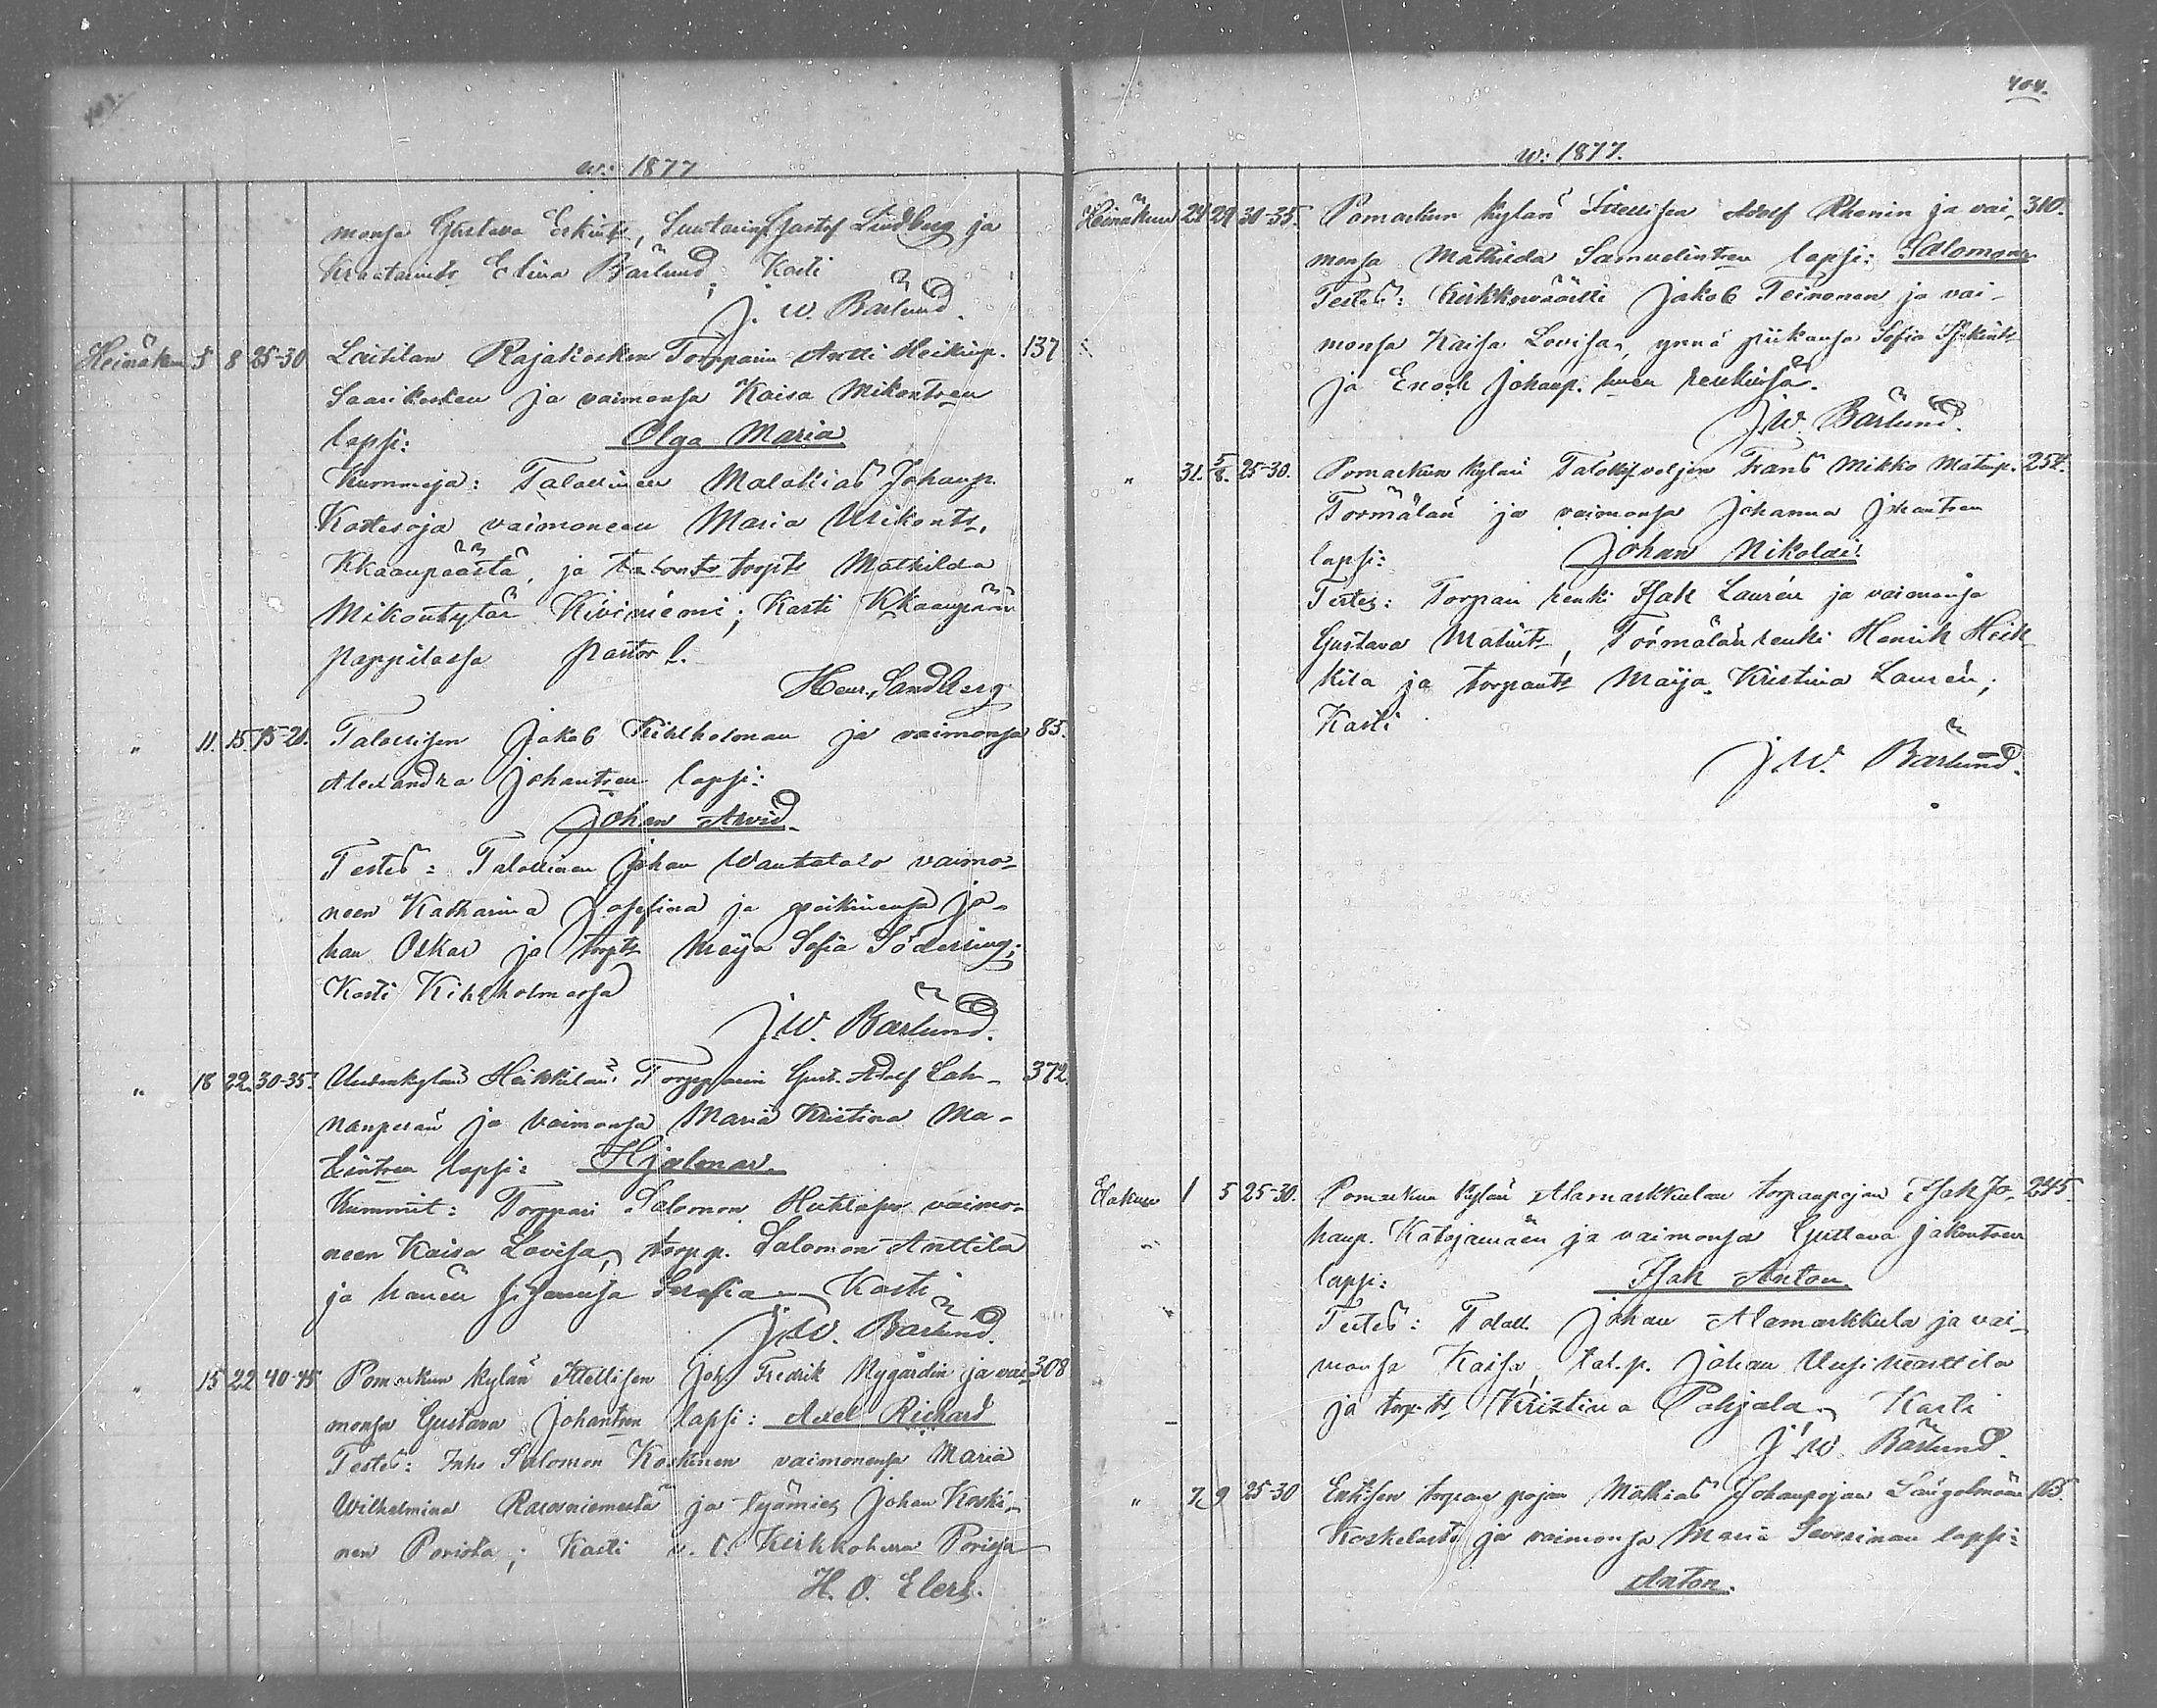 w: 1877
monsa Gustava Erkints, Suutarin Gustof Lindberg ja
Elina Bärlund; Kasti
J. W. Bärlund.
Heinäkuu 5 8 25-30 Laitilan Rajakosken Torpparin Antti Heikinp. 137
Saarikosken ja vaimonsa Kaisa Mikontren
lapsi: Olga Maria
Kummeja: Talollinen Malakias Johanp.
Kostesoja vaimoneen Maria Mikonts.
Kkaanpäästä, ja torpts Mathilda
Mikontytär Kiviniemi; Kasti Kkaanpään
pappilassa Pastor l.
Henr. Sandberg
" 11. 15. 15-20. Talollisen Jakob Kihlholman ja vaimonsa 85.
Alexandra Johantren lapsi:
Johan Arvid.
Testes: Talollinen Johan Wantatalo vaimo-
neen Katharina Josefina ja poikinensa Jo-
han Oskar ja torpts Maija Sofia Söderling;
Kasti Kihlholmassa
J. W. Bärlund.
" 18 22. 30-35. Uudenkylän Heikkilän Torpparin Gust. Adolf Lah- 372.
nanperän ja vaimonsa Maria Kristina Ma-
tintren lapsi: Hjalmar.
Kummit: Torppari Salomon vaimo-
neen Kaisa Lovisa, torpp. Salomon Anttila
ja hänen sisarensa Serafia. Kasti
J. W. Bärlund.
" 15 22 40-45 Pomarkun kylän Ittellisen Joh. Fredrik Nygårdin ja vai- 308
monsa Gustava Johantren lapsi: Axel Richard
Testes: Inhs Salomon Koskinen vaimonensa Maria
Wilhelmina ja työmies Johan Koski-
nen Porista; Kasti v. t. Kirkkoherra Porissa
H. O. Elers.
404.
w: 1877.
Heinäkuu 24 29 30-35. Pomarkun kylän Ittellisen Adolf Rhenin ja vai- 310.
monsa Mathilda Samuelintren lapsi: Salomon
Testes: Kirkkoväärti Jakob Teinonen ja vai-
monsa Kaisa Lovisa, ynnä piikansa Sofia
ja Enock Johanp. hnen renkinsä.
J. W. Bärlund.
" 31. 5/8. 25-30. Pomarkun kylän Frans Mikko Matinp. 254.
Törmälän ja vaimonsa Johanna Johantren
lapsi: Johan Nikolai.
Testes: Torpan renki Isak Laurén ja vaimonsa
Gustava Matints, Törmälän renki Henrik Heik-
kila ja torpants Maija Kristina Laurén;
Kasti
J. W. Bärlund.
Elokuu 1 5 25-30. Pomarkun kylän Alamarkkulan torpanpojan Isak Jo- 245
hanp. Katajamäen ja vaimonsa Gustava Jakontren
lapsi: Isak Anton.
Testes: Talol. Johan Alamarkkula ja vai-
monsa Kaisa, tal.p. Johan Uusimarttila
ja torp.ts Kristina Pohjala. Kasti
J. W. Bärlund.
" 7. 9 25-30 torpan pojan Mathias Johanpojan 165.
ja vaimonsa Maria Severinan lapsi:
Anton.